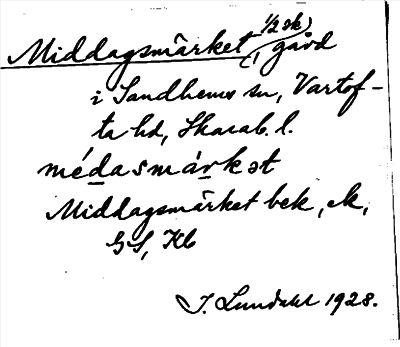 Middagsmärket, (1/2 sk) gård
i Sandhems sn, Vartof-
ta hd, Skarab. l.
médasmárkət
Middagsmärket bek, ek,
GS, Kb
J. Lundahl 1928.